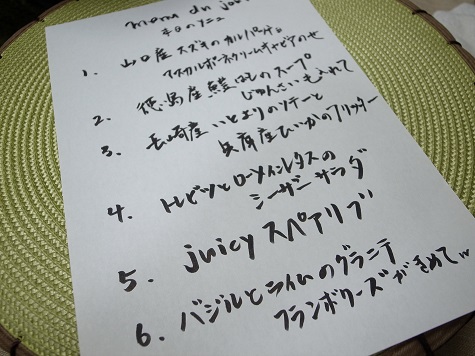 menu du jour
本日のメニュー
1. 山口産 スズキのカルパッチョ。
マスカルポーネクリームキャビアのせ
2. 徳島産鱧はものスープ
じゅんさいも入れて
3. 長崎産いとよりのソテーと
兵庫産ひいかのフリッター
4. トレビツとローメインレタスの
シーザーサラダ
5. juicy スペアリブ
6. バジルとライムのグラニテ
フランボワーズがきめて